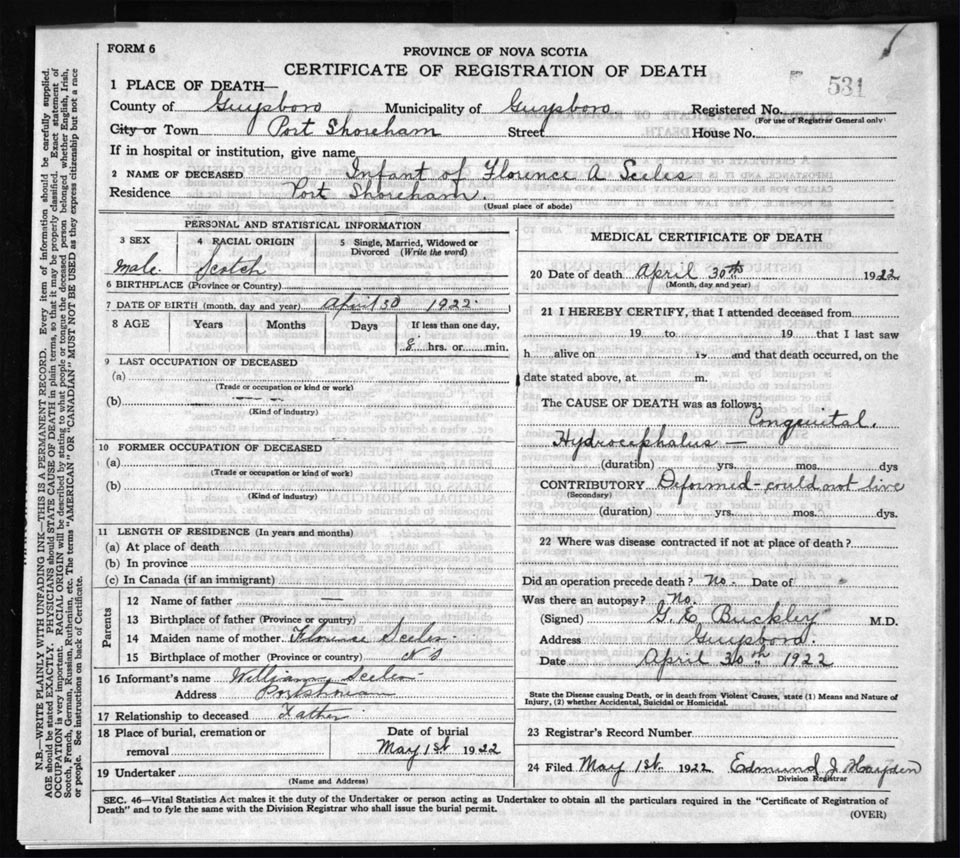 FORM 6
PROVINCE OF NOVA SCOTIA
CERTIFICATE OF REGISTRATION OF DEATH
531
1 PLACE OF DEATH—
County of Guysboro Municipality of Guysboro Registered No.
(For use of Registrar General only)
City or Town Port Shoreham Street House No.
If in hospital or institution, give name
2 NAME OF DECEASED Infant of Florence A Seeles
Residence Port Shoreham.
(Usual place of abode)
PERSONAL AND STATISTICAL INFORMATION
3 SEX 4 RACIAL ORIGIN 5 Single, Married, Widowed or Divorced (Write the word)
Male. Scotch
6 BIRTHPLACE (Province or Country)
7 DATE OF BIRTH (month, day and year) April 30 1922
8 AGE Years Months Days If less than one day,
8 hrs. or min.
9 LAST OCCUPATION OF DECEASED
(a)
(Trade or occupation or kind or work)
(b)
(Kind of industry)
10 FORMER OCCUPATION OF DECEASED
(a)
(Trade or occupation or kind of work)
(b)
(Kind of industry)
11 LENGTH OF RESIDENCE (In years and months)
(a) At place of death
(b) In province
(c) In Canada (if an immigrant)
Parents
12 Name of father —
13 Birthplace of father (Province or country)
14 Maiden name of mother Florence Seeles
15 Birthplace of mother (Province or country) N S
16 Informant's name William Seeles
Address Portshoream
17 Relationship to deceased Father
18 Place of burial, cremation or removal Date of burial
May 1st 1922
19 Undertaker
(Name and Address)
MEDICAL CERTIFICATE OF DEATH
20 Date of death April 30th 1922
(Month, day and year)
21 I HEREBY CERTIFY, that I attended deceased from
19 to 19 that I last saw
h alive on 19 and that death occurred, on the
date stated above, at m.
The CAUSE OF DEATH was as follows:
Congenital.
Hydrocephalus —
(duration) yrs. mos. dys
CONTRIBUTORY Deformed - could not live
(Secondary)
(duration) yrs. mos. dys.
22 Where was disease contracted if not at place of death?
Did an operation precede death? No. Date of
Was there an autopsy? No.
(Signed) G. E. Buckley M.D.
Address Guysboro.
Date April 30th 1922
State the Disease causing Death, or in death from Violent Causes, state (1) Means and Nature of
Injury, (2) whether Accidental, Suicidal or Homicidal.
23 Registrar's Record Number
24 Filed May 1st 1922 Edmund J. Hayden
Division Registrar
SEC. 46—Vital Statistics Act makes it the duty of the Undertaker or person acting as Undertaker to obtain all the particulars required in the "Certificate of Registration of
Death" and to fyle the same with the Division Registrar who shall issue the burial permit.
(OVER)
N.B.—WRITE PLAINLY WITH UNFADING INK—THIS IS A PERMANENT RECORD. Every item of information should be carefully supplied.
AGE should be stated EXACTLY. PHYSICIANS should STATE CAUSE OF DEATH in plain terms, so that it may be properly classified. Exact statement of
OCCUPATION is very important. RACIAL ORIGIN will be described by stating to what people or tongue the deceased person belonged whether English, Irish,
Scotch, French, German, Russian, Ruthenian, etc. The terms "AMERICAN" OR "CANADIAN" MUST NOT BE USED as they express citizenship but not a race
or people. See instructions on back of Certificate.